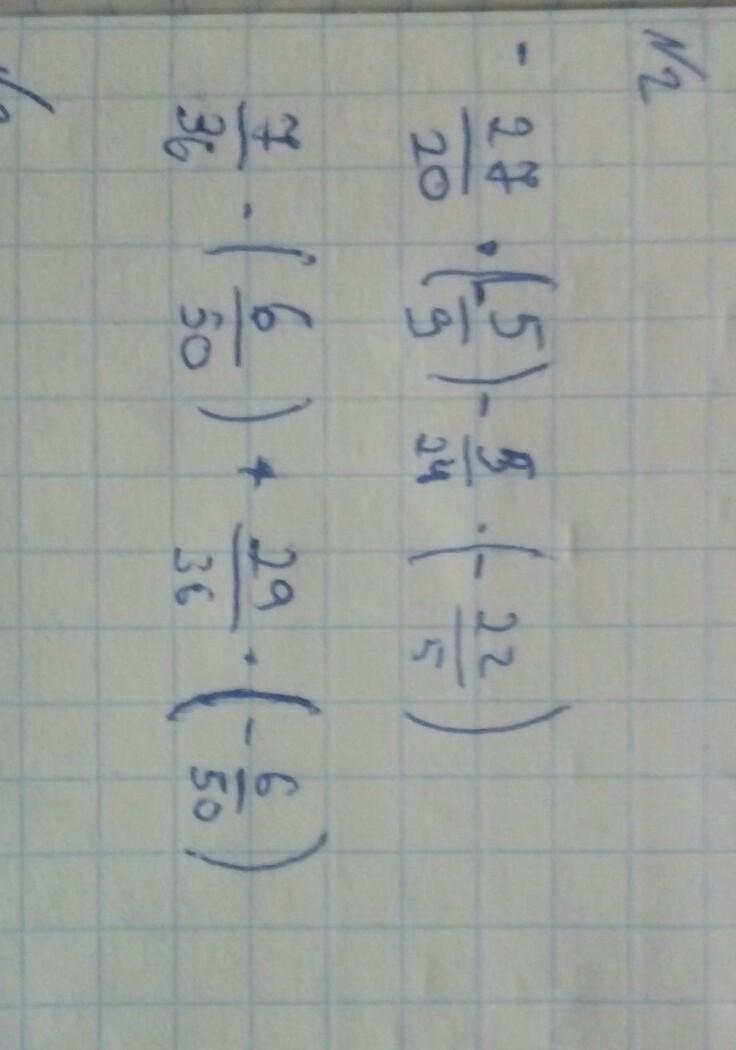 №2
- 27/20 · (- 5/9) - 5/24 · (- 22/5)
7/36 · (6/50) + 29/36 · (- 6/50)